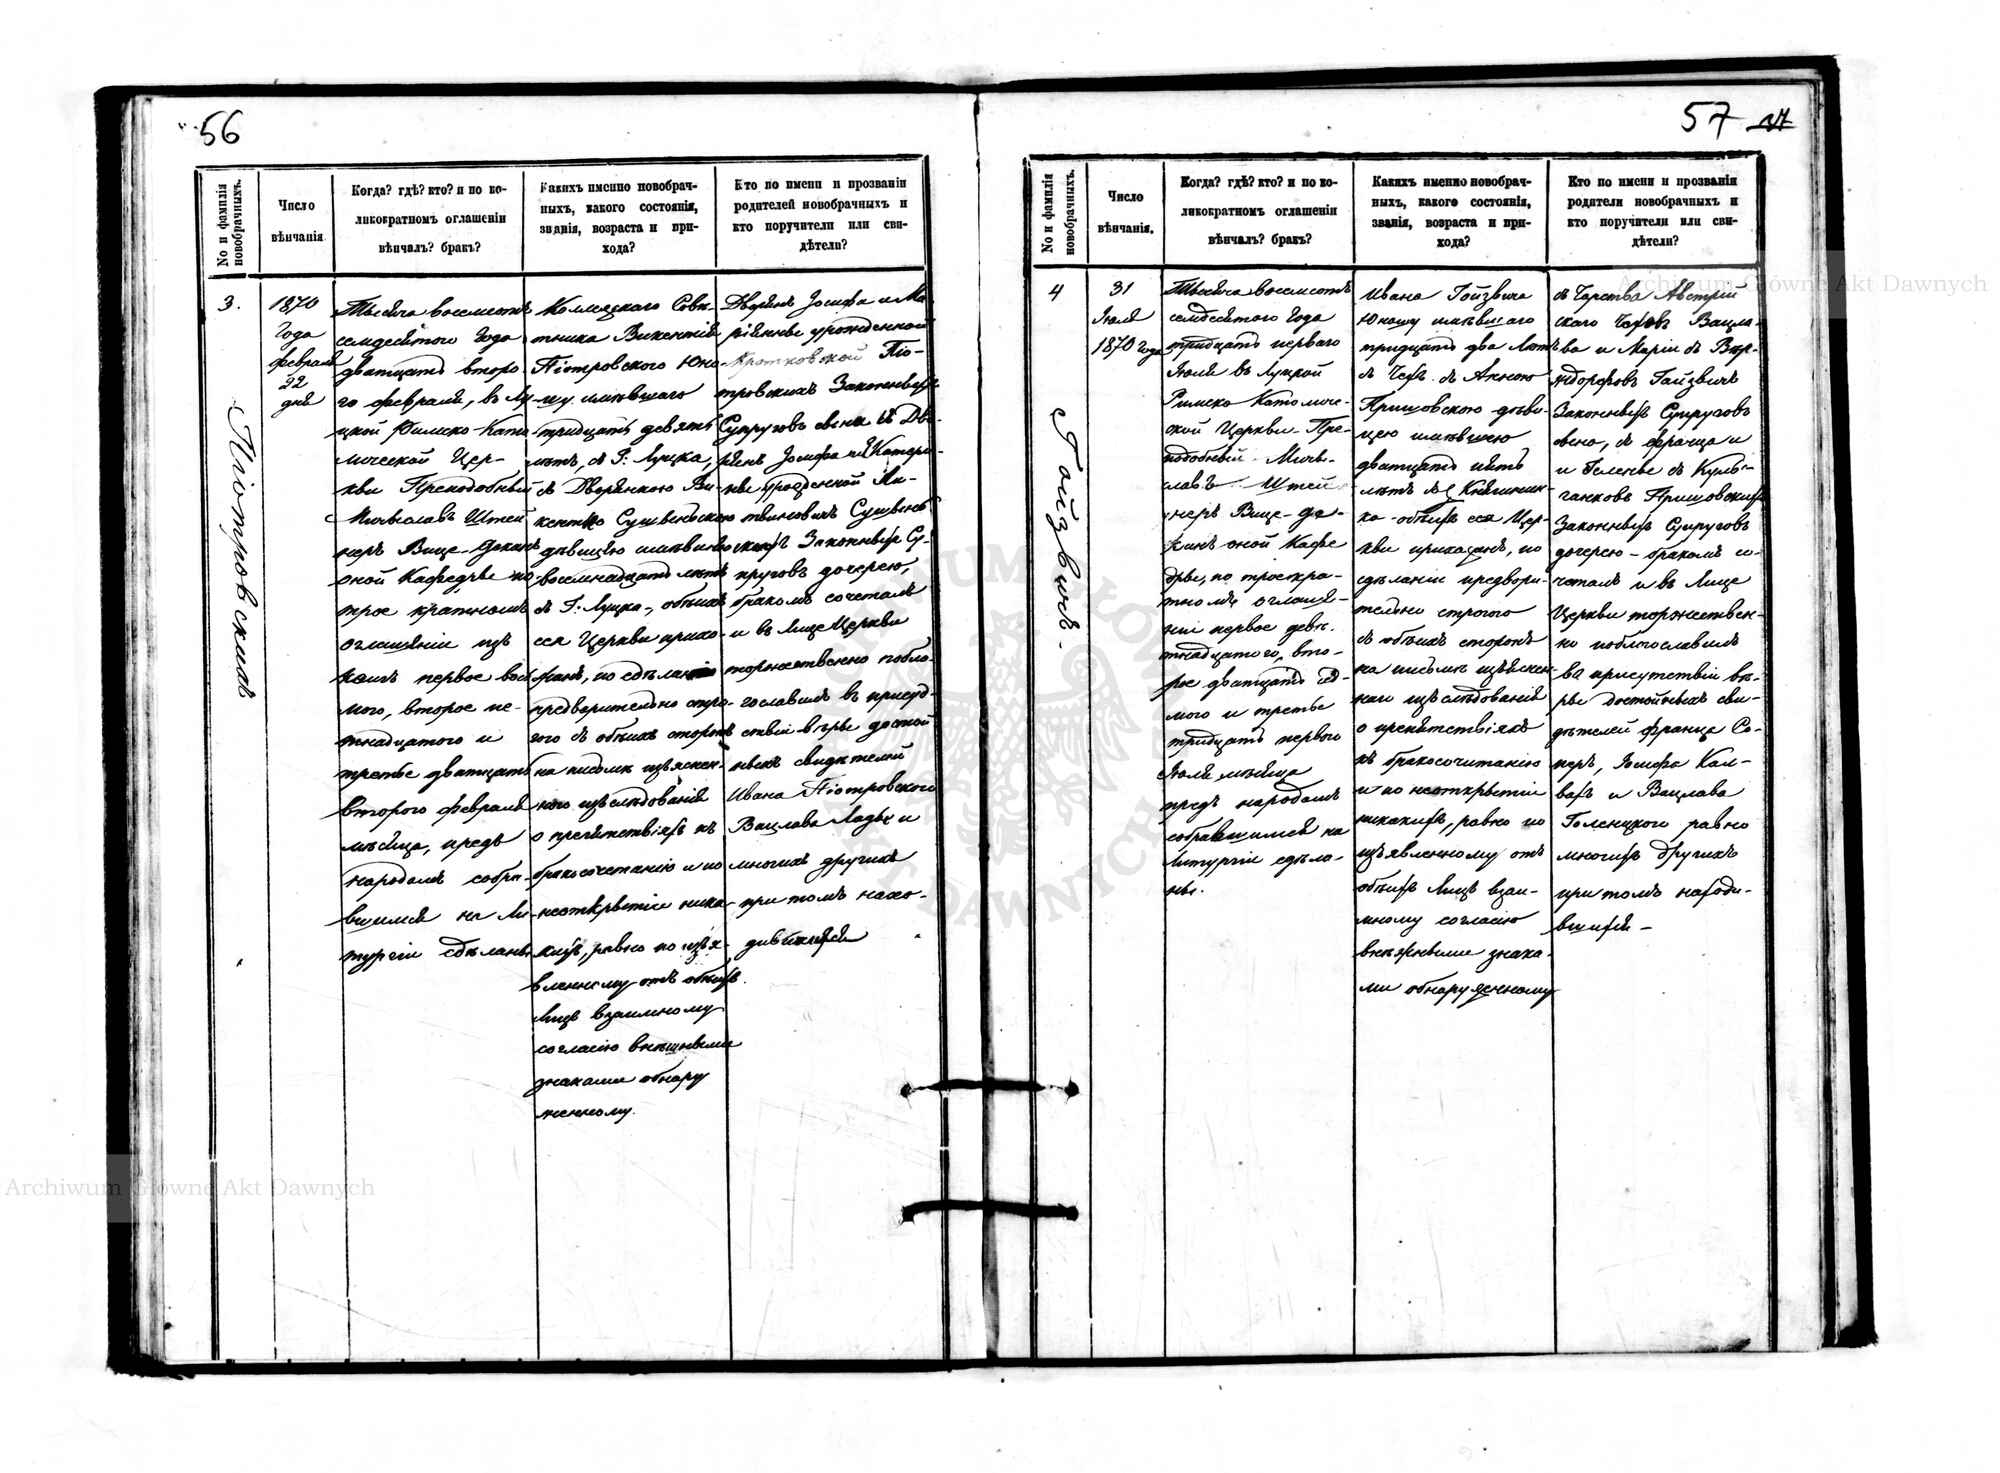 56
No и фамилія новобрачныхъ.
Число вѣнчанія
Когда? гдѣ? кто? и по ко-
ликократномъ оглашеніи
вѣнчалъ? бракъ?
Какихъ именно новобрач-
ныхъ, какого состоянія,
званія, возраста и при-
хода?
Кто по имени и прозваніи
родителей новобрачныхъ и
кто поручители или сви-
дѣтели?
3.
Піотровскихъ
1870
Года
февраля
22
дня
Тысяча восемсотъ
семдесятого Года
дватцать второ
го февраля, въ Лу
цкой Римско-Като
лической Цер-
кви Преподобный
Мичеславъ Штей
неръ Вице-Деканъ
оной Кафедры по
трое кратномъ
оглашеніи изъ
коихъ первое вось
мого, второе пе-
тнадцатого и
третье дватцать
второго февраля
мѣсяца, предъ
народомъ собра-
вшимся на Ли-
тургіи сдѣланы
Коллежского Совѣ
тника Викентія
Піотровского Юно
шу имѣвшаго
тридцать девять
лѣтъ, съ Г: Луцка,
съ Дворянкою Ви-
кентію
дѣвицею имѣвшею
восемнадцать лѣтъ
съ Г: Луцка, обоихъ
сея Церкви прихо-
жанъ, по сдѣланіи
предварительно стро-
гого съ обоихъ сторонъ
на письмѣ изъяснен-
ного изслѣдованія
о препятствіяхъ къ
бракосочетанію и по
неоткрытіи ника-
кихъ, равно по изъя-
вленному отъ обоихъ
лицъ взаимному
согласію внѣшными
знаками обнару
женному.
Дворянъ Іосифа и Ма
ріянны урожденной
Кротковской Піо-
тровскихъ Законныхъ
Супруговъ сына съ Дво
рянъ Іосифа и Катери-
ны урожденной Ли-
твиновичъ
Законныхъ Су-
пруговъ дочерею,
бракомъ сочеталъ
и въ Лице Церкви
торжественно побло-
гословилъ въ присут-
ствіи вѣры достой
ныхъ свидѣтелей
Ивана Піотровского
Вацлава Ладых и
многихъ другихъ
при томъ нахо-
дившихся
57
No и фамилія новобрачныхъ.
Число вѣнчанія.
Когда? гдѣ? кто? и по ко-
ликократномъ оглашеніи
вѣнчалъ? бракъ?
Какихъ именно новобрач-
ныхъ, какого состоянія,
званія, возраста и при-
хода?
Кто по имени и прозваніи
родители новобрачныхъ и
кто поручители или сви-
дѣтели?
4
Гойзвичъ.
31
Іюля
1870 года
Тысяча восемсотъ
семдесятого Года
тридцать первого
Іюля въ Луцкой
Римско Католиче-
ской Церкви Пре-
подобный Мичи-
славъ Штей
неръ Вице-Де-
канъ оной Кафе
дры, по троекра-
тномъ оглаше-
ніи первое девя-
тнадцатого, вто-
рое дватцать сед-
мого и третье
тридцать первого
Іюля мѣсяца
предъ народомъ
собравшимся на
Литургіи сдѣла-
ны.
Ивана Гойзвича
Юношу имѣвшаго
тридцать два Лѣтъ
съ Чехъ съ Анною
Пришовскою дѣви-
цею имѣвшею
двадцать пять
лѣтъ съ Княгинин-
ка обоихъ сея Цер-
кви прихожанъ, по
сдѣланіи предвари-
тельно строгого
съ обоихъ сторонъ
на письмѣ изъяснен-
ного изслѣдованія
о препятствіяхъ
къ бракосочитанію
и по неоткрытіи
никакихъ, равно по
изъявленному отъ
обоихъ Лицъ взаи-
мному согласію
внѣжными знака-
ми обнаруженному
съ Царства Австрій
ского Чеховъ Вацла-
ва и Маріи съ
Гойзвичъ
Законныхъ Супруговъ
сына, съ Франца и
и Гелены съ
Пришовскихъ
Законныхъ Супруговъ
дочерею - бракомъ со-
четалъ и въ Лице
Церкви торжествен-
но поблогословилъ
въ присутствіи вѣ-
ры достойныхъ сви-
дѣтелей Франца Со-
перъ, Іосифа Кол-
варъ и Вацлава
Голецкого равно
многихъ другихъ
при томъ находи-
вшихся
Archiwum Główne Akt Dawnych
Archiwum Główne Akt Dawnych